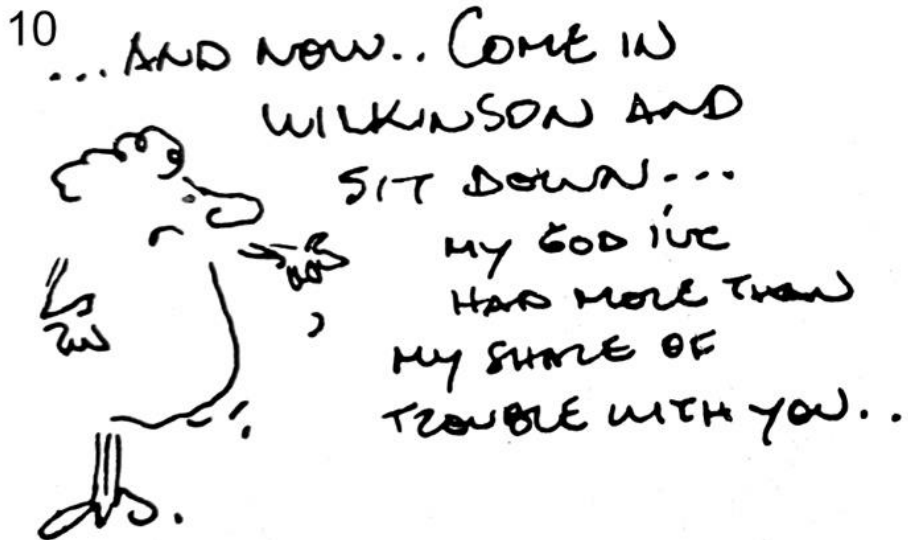 10
...AND NOW.. COME IN
WILKINSON AND
SIT DOWN...
MY GOD I'VE
HAD MORE THAN
MY SHARE OF
TROUBLE WITH YOU..